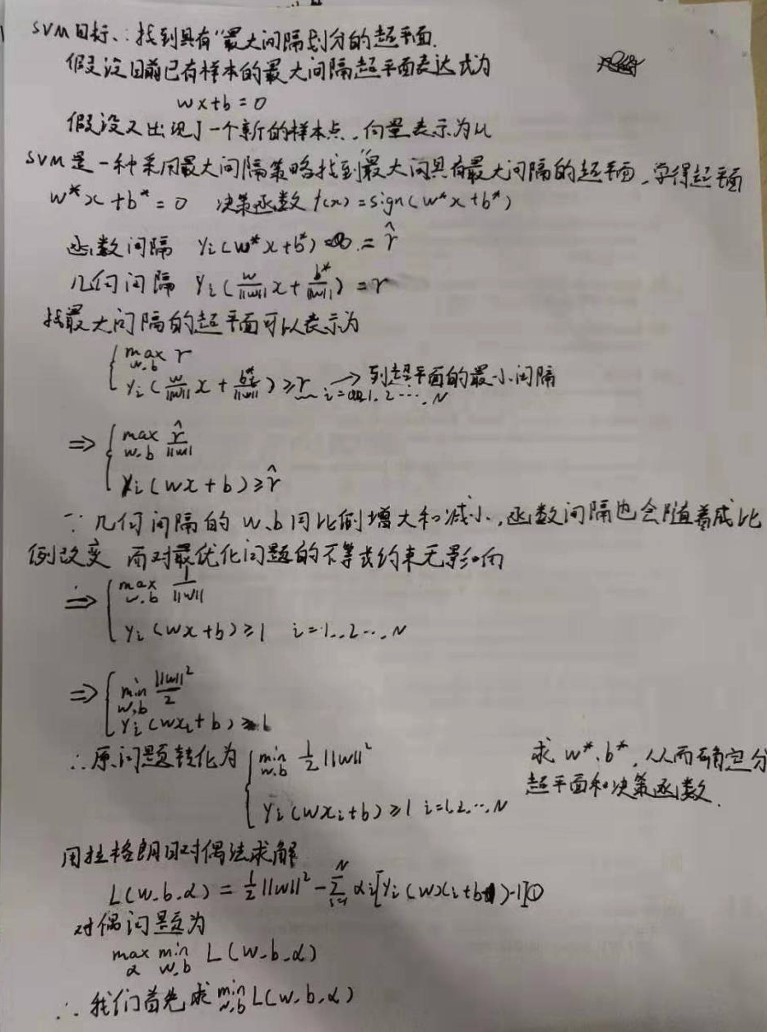 SVM目标:找到具有"最大间隔划分的超平面.
假设目前已有样本的最大间隔超平面表达式为
wx+b=0
假设又出现了一个新的样本点,向量表示为u
SVM是一种采用最大间隔策略找到最大间具有最大间隔的超平面,学得超平面
w*x+b*=0 决策函数f(x)=sign(w*x+b*)
函数间隔 yi(w*x+b*) = r̂
几何间隔 yi(w/||w|| x + b*/||w||)=r
找最大间隔的超平面可以表示为
{ max w.b r
yi(w/||w|| x + b*/||w||)≥r → 到超平面的最小间隔
i=1,2…,N
⇒{ max w.b r̂/||w||
yi(wx+b)≥r̂
∵几何间隔的w、b同比例增大和减小,函数间隔也会随着成比
例改变 而对最优化问题的不等式约束无影响
⇒{ max w.b 1/||w||
yi(wx+b)≥1 i=1,2…,N
⇒{ min w,b ||w||²/2
yi(wxi+b)≥1
∴原问题转化为{ min w.b ½||w||²
yi(wxi+b)≥1 i=1,2,…,N
求w*、b*,从而确定分
超平面和决策函数.
用拉格朗日对偶法求解
L(w.b.α)=½||w||²-∑(i=1→N) αi[yi(wxi+b)-1]①
对偶问题为
max α min w.b L(w.b.α)
∴我们首先求 min w.b L(w.b.α)